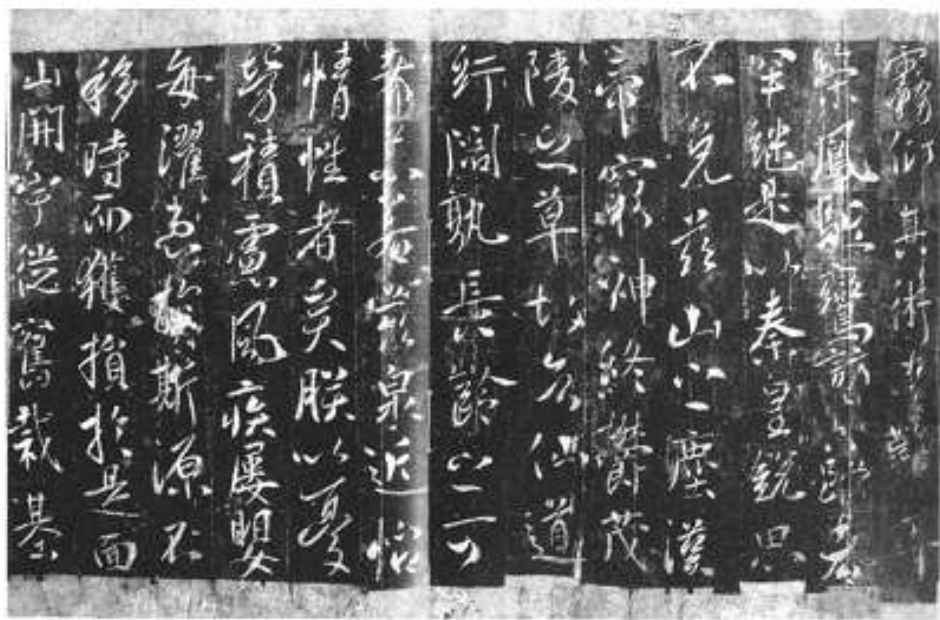 仰其術
鳳駐鸞
罕継是以秦皇鋭思
不免茲山之塵漢
帝窮神終欝茂
陵之草故知仙道
紆闊孰長齡之可
泉近怡
情性者矣朕以憂
勞積慮風疾屢嬰
每濯患於斯源不
移時而獲損於是面
山開宇從舊裁基